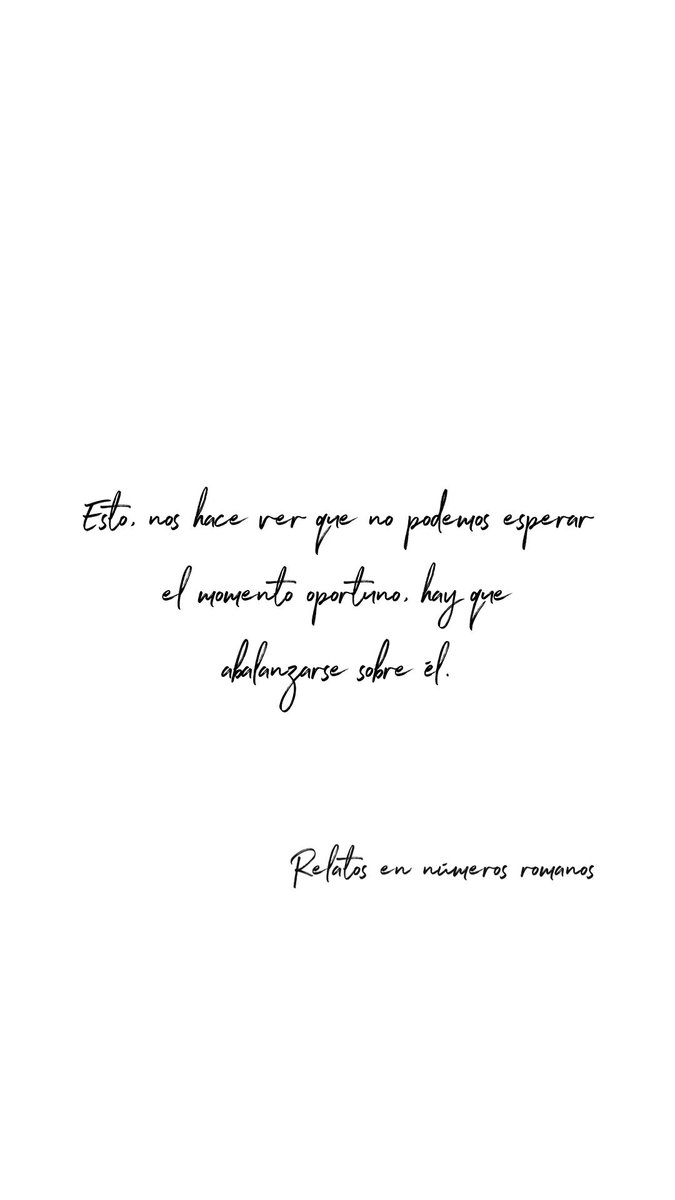 Esto, nos hace ver que no podemos esperar
el momento oportuno, hay que
abalanzarse sobre él.
Relatos en números romanos